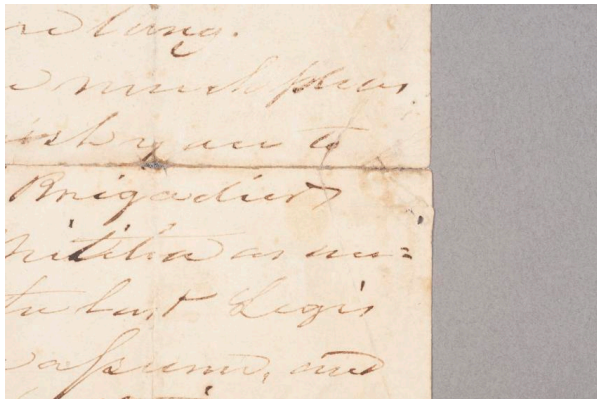 re long.
much pleas
ish you to
Brigadiers
Militia as au=
the last Legis
assume, and